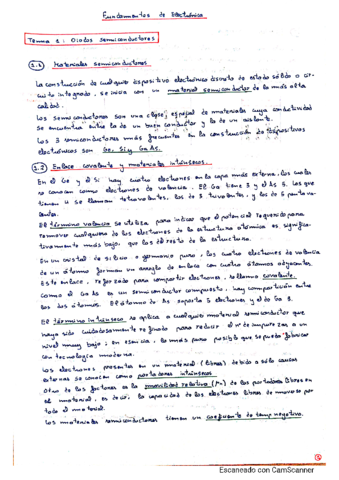 Fundamentos de Electrónica
Tema 1: Diodos Semiconductores
1.1 Materiales semiconductores.
La construcción de cualquier dispositivo electrónico discreto de estado sólido o cir-
cuito integrado, se inicia con un material semiconductor de la más alta
calidad.
Los semiconductores son una clase especial de materiales cuya conductividad
se encuentra entre la de un buen conductor y la de un aislante.
Los 3 semiconductores más frecuentes en la construcción de dispositivos
electrónicos son Ge, Si y Ga As.
1.2 Enlace covalente y materiales intrínsecos.
En el Ge y el Si hay cuatro electrones en la capa más externa, los cuales
se conocen como electrones de valencia. El Ga tiene 3 y el As 5. Los que
tienen 4 se llaman tetravalentes, los de 3 trivalentes, y los de 5 pentava-
lentes.
El término valencia se utiliza para indicar que el potencial requerido para
remover cualquiera de los electrones de la estructura atómica es significa-
tivamente más bajo, que los del resto de la estructura.
En un cristal de silicio o germanio puro, los cuatro electrones de valencia
de un átomo forman un arreglo de enlace con cuatro átomos adyacentes.
Este enlace, reforzado para compartir electrones, se llama covalente.
Como el Ga As es un semiconductor compuesto, hay compartición entre
los dos átomos. El átomo de As aporta 5 electrones y el de Ga 3.
El término intrínseco se aplica a cualquier material semiconductor que
haya sido cuidadosamente refinado para reducir el nº de impurezas a un
nivel muy bajo; en esencia, lo más puro posible que se puede fabricar
con tecnología moderna.
Los electrones presentes en un material (libres) debido a sólo causas
externas se conocen como portadores intrínsecos
Otro de los factores es la movilidad relativa (μn) de los portadores libres en
el material, es decir, la capacidad de los electrones libres de moverse por
todo el material.
Los materiales semiconductores tienen un coeficiente de temp negativo.
Escaneado con CamScanner